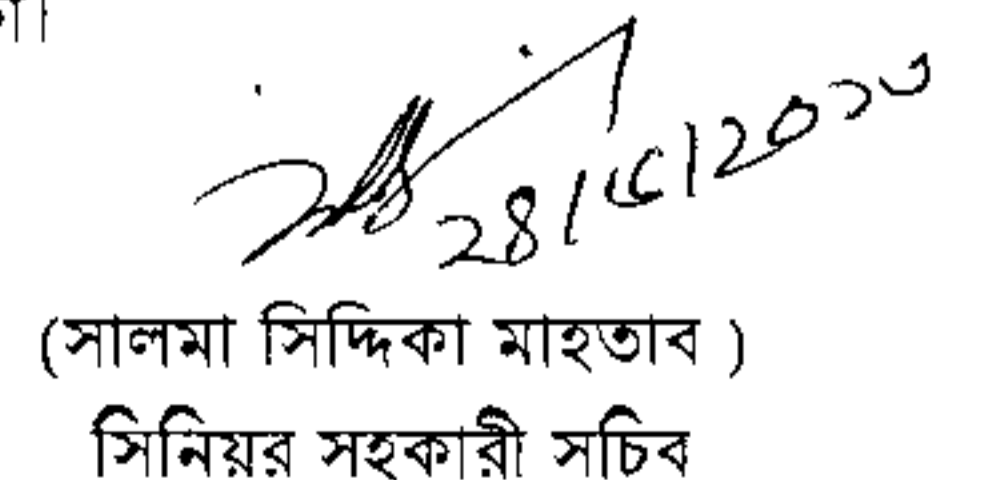 ২৪/৫/২০১৩
(সালমা সিদ্দিকা মাহতাব )
সিনিয়র সহকারী সচিব